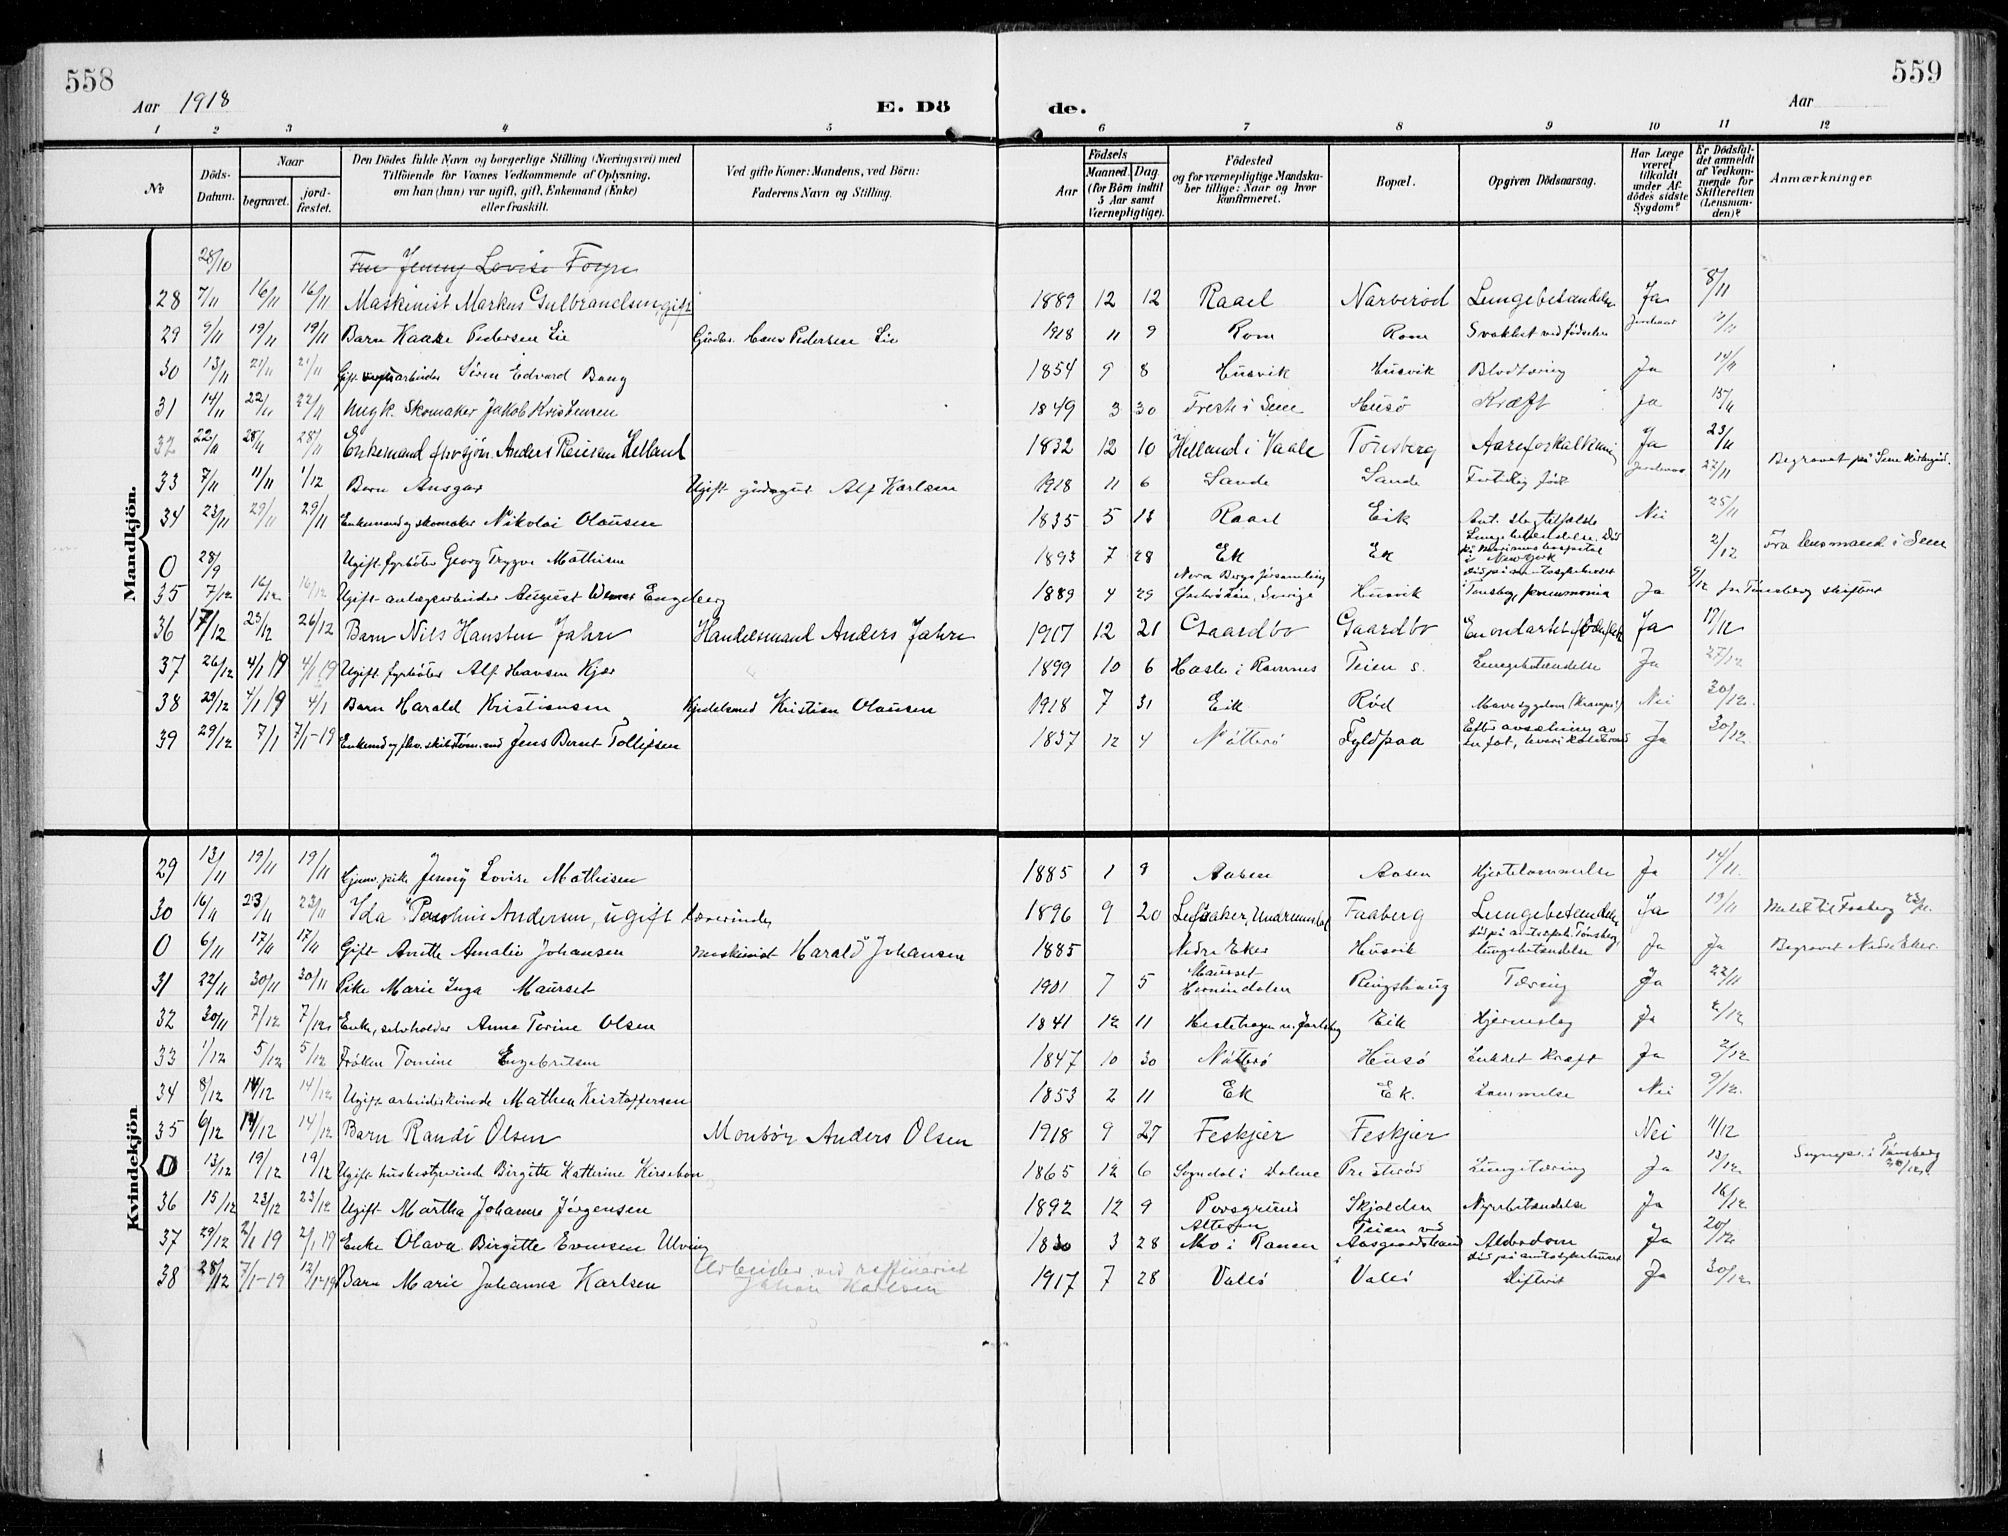 558
559
Aar 1918
E. Dö
de.
Aar
1 2 3 4 5 6 7 8 9 10 11 12
№
Döds-Datum.
Naar
begravet.
jord-fæstet.
Den Dödes fulde Navn og borgerlige Stilling (Næringsvei) med
Tilföiende for Voxnes Vedkommende af Oplysning,
om han (hun) var ugift, gift, Enkemand (Enke)
eller fraskilt.
Ved gifte Koner: Mandens, ved Börn:
Faderens Navn og Stilling.
Födsels
Aar
Maaned.
Dag.
(for Börn indtil 5 Aar samt Værnepligtige).
Födested
og for værnepligtige Mandska-
ber tillige: Naar og hvor
konfirmeret.
Bopæl.
Opgiven Dödsaarsag.
Har Læge været tilkaldt under Af-dödes sidste Sygdom?
Er Dödsfal-det anmeldt af Vedkom-mende for Skifteretten (Lensman-den)?
Anmærkninger
Mandkjön.
28/10 Fru Jenny Lovise Foyn
28 7/11 16/11 16/11 Maskinist Markus Gulbrandsen, gift 1889 12 12 Raael Narverød Lungebetændelse Ja 8/11
29 9/11 19/11 19/11 Barn Kaare Pedersen Lie Gårdbr. Hans Pedersen Lie 1918 11 9 Rom Rom Svakhet ved fødselen Jordmor
30 13/11 21/11 21/11 Gift arbeider Søren Edvard Bang 1854 9 8 Husvik Husvik Blodtæring Ja 14/11
31 14/11 22/11 22/11 Ungk. Skomaker Jakob Kristensen 1849 3 30 Sem Husö Kræft Ja 15/11
32 22/11 28/11 28/11 Enkemand fhv sjøm. Anders Reiersen Helland 1832 12 10 Helland i Vaale Tönsberg Aareforkalkning Ja 23/11
33 7/11 11/11 1/12 Barn Ansgar Ugift gårdsgut Alf Karlsen 1918 11 6 Sande Sande Fortidlig født Jordmor 27/11 Begravet på Sem kirkegård.
34 23/11 29/11 29/11 Enkemand og skomaker Nikolai Olausen 1835 5 13 Raael Eik Ant. slagtilfælde Nei 25/11
0 28/9 Ugift fyrbøter Georg Trygve Mathisen 1893 7 28 Ek Ek Lungebetændelse. Død på Marinenshospital i New York 2/12 Fra lensmand i Sem
35 7/12 16/12 16/12 Ugift anlægsarbeider August Engeberg 1889 4 29 Nora Bergsförsamling Örebro Län, Sverige Husvik død på amtssykehuset i Tønsberg, pneumonia Ja 9/12 fra Tønsberg skifteret
36 17/12 23/12 26/12 Barn Nils Hansten Jahre Handelsmand Anders Jahre 1917 12 21 Gaardbo Gaardbo Ja 17/12
37 26/12 4/1 19 4/1 19 Ugift fyrbøter Alf Hansen Kjær 1899 10 6 Hasle i Ramnes Teien s. Lungebetændelse Ja 27/12
38 29/12 4/1 19 4/1 Barn Harald Kristiansen Kjedelsmed Kristian Olausen 1918 7 31 Eik Rød Mavesygdom (Krampe) Nei 30/12
39 29/12 7/1 7/1-19 Enkemd og fhv. skibstøm.md Jens Bernt Tollefsen 1837 12 4 Nøtterø Fyldpaa Efter avsætning av en fot, hvori Ja 30/12
Kvindekjön
29 13/11 19/11 19/11 Hjemv. pike Jenny Lovise Mathisen 1885 1 9 Aasen Aasen Hjertelammelse Ja 14/11
30 16/11 23/11 23/11 Ida Pauline Andersen, ugift lærerinde 1896 9 20 Faaberg Lungebetændelse Ja 19/11 Meldt til Faaberg 23/11
0 6/11 17/11 17/11 Gift Anette Amalie Johansen maskinist Harald Johansen 1885 Nedre Eker Husvik død på amtssykh. Tønsberg, lungebetændelse Ja Ja Begravet Nedre Eker.
31 22/11 30/11 30/11 Pike Marie Inga Maurset 1901 7 5 Maurset Hornindalen Ringshaug Tæring Ja 22/11
32 30/11 7/12 7/12 Enke, selvholder Anna Torine Olsen 1841 12 11 Hestehagen u. Jarlsberg Eik Hjerneslag Ja 2/12
33 1/12 5/12 5/12 Frøken Tomine Engebritsen 1847 10 30 Nøtterø Husø Kræft Ja 2/12
34 8/12 14/12 14/12 Ugift arbeiderkvinde Mathea Kristoffersen 1853 2 11 Ek Ek. Lammelse Nei 9/12
35 6/12 14/12 14/12 Barn Randi Olsen Montör Anders Olsen 1918 9 27 Feskjær Feskjær Nei 11/12
0 13/12 19/12 19/12 Ugift husbestyrerinde Birgitte Katherine Kirsebom 1865 12 6 Sogndal i Dalane Presterød Lungetæring Ja 13/12 Sognepr. i Tønsberg 20/12
36 15/12 23/12 23/12 Ugift Martha Johanne Jørgensen 1892 12 9 Porsgrund Skjolden Nyrebetændelse Ja 16/12
37 29/12 2/1 19 2/1 19 Enke Olava Birgitte Evensen Ulving 1830 3 28 Mo i Ranen Teien ved Aasgaardstrand Alderdom Ja 20/12
38 28/12 7/1-19 12/1-19 Barn Marie Johanna Karlsen Arbeider ved raffineriet Johan Karlsen 1917 7 28 Valø Valø død på amtssykehuset Difterit Ja 30/12